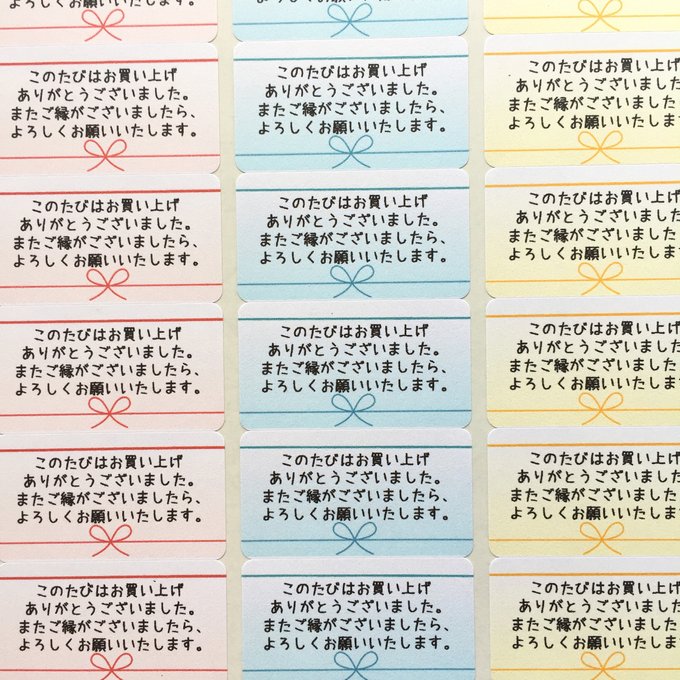 よろしくお願いいたします。
このたびはお買い上げ
ありがとうございました。
またご縁がございましたら、
よろしくお願いいたします。
このたびはお買い上げ
ありがとうございました。
またご縁がございましたら、
よろしくお願いいたします。
このたびはお買い上げ
ありがとうございました
またご縁がございました
よろしくお願いいたします
このたびはお買い上げ
ありがとうございました。
またご縁がございましたら、
よろしくお願いいたします。
このたびはお買い上げ
ありがとうございました。
またご縁がございましたら、
よろしくお願いいたします。
このたびはお買い上げ
ありがとうございました
またご縁がございました
よろしくお願いいたします
このたびはお買い上げ
ありがとうございました。
またご縁がございましたら、
よろしくお願いいたします。
このたびはお買い上げ
ありがとうございました。
またご縁がございましたら、
よろしくお願いいたします。
このたびはお買い上げ
ありがとうございました
またご縁がございました
よろしくお願いいたします
このたびはお買い上げ
ありがとうございました。
またご縁がございましたら、
よろしくお願いいたします。
このたびはお買い上げ
ありがとうございました。
またご縁がございましたら、
よろしくお願いいたします。
このたびはお買い上げ
ありがとうございました
またご縁がございました
よろしくお願いいたします
このたびはお買い上げ
ありがとうございました。
またご縁がございましたら、
よろしくお願いいたします。
このたびはお買い上げ
ありがとうございました。
またご縁がございましたら、
よろしくお願いいたします。
このたびはお買い上げ
ありがとうございました
またご縁がございました
よろしくお願いいたします